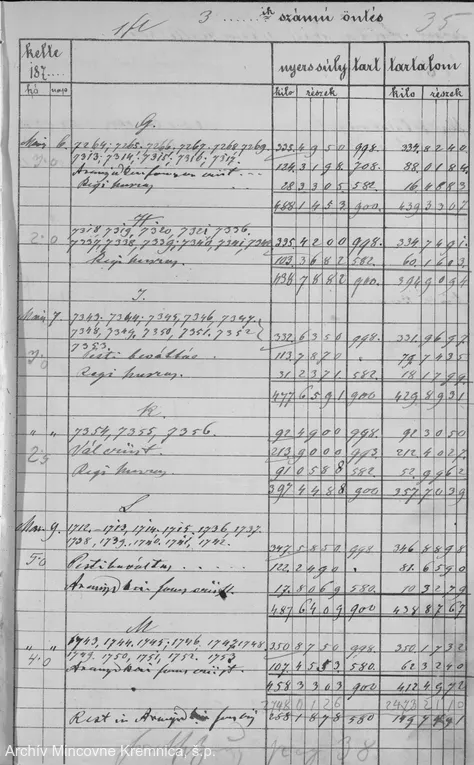 3 ik számú öntés 35
kelte nyerssúly tart tartalom
187
hó nap kilo részek kilo részek
G.
Mai 6. 7264, 7265, 7266, 7267, 7268, 7269
335 4950 998. 334 8240
7313, 7314, 7315, 7316, 7317.
124 3198 708. 88 0184
Regi huszas 28 3305 582. 16 4883
488 1453 900. 439 3307
H
7318, 7319, 7320, 7321, 7336,
7337, 7338, 7339, 7340, 7341, 7342
335 4200 998. 334 7491.
Regi huszas 103 3682 582. 60 1603
438 7882 900. 394 9094
I.
Mai 7. 7343, 7344, 7345, 7346, 7347,
7348, 7349, 7350, 7351, 7352
332 6350 998. 331 9697
7353.
Pesti beváltás 113 7870 79 7435
Regi huszas 31 2371 582. 18 1799
477 6591 900 429 8931
K.
" " 7354, 7355, 7356. 92 4900 998. 92 3050
Vál ezüst. 213 9000 993. 212 4027
Regi huszas 91 0588 582. 52 9962
397 4488 900 357 7039
L
Mai 9. 1712, 1713, 1714, 1715, 1736, 1737.
1738, 1739, 1740, 1741, 1742.
347 5850 998 346 8898
Pesti beváltás 122 2490 81 6590
17 8069 580. 10 3279
487 6409 900 438 8767
M
" " 1743, 1744, 1745, 1746, 1747, 1748
350 8750 998. 350 1732
1749, 1750, 1751, 1752, 1753
107 4553 580. 62 3240
458 3303 900 412 4972
2748 0126 2473 2110
258 1878 580
Archív Mincovne Kremnica, š.p.